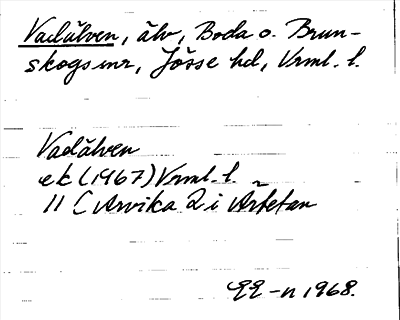 Vadälven, älv, Boda o. Brun-
skogs snr, Jösse hd, Vrml. l.
Vadälven
ek (1967) Vrml. l.
11 C Arvika 2 i
EE-n 1968.